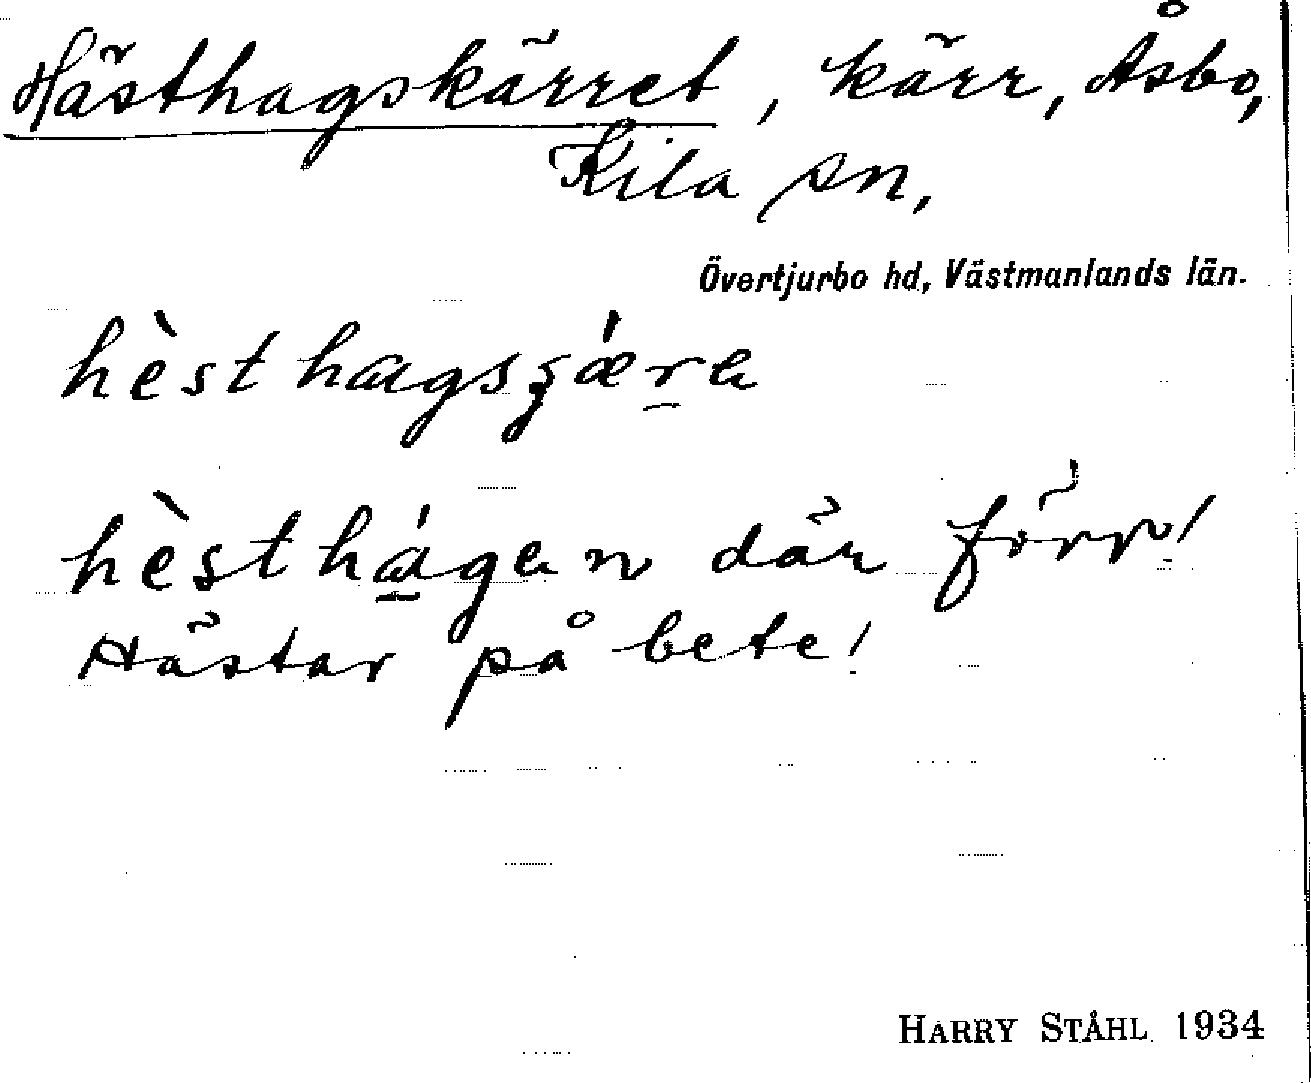 Hästhagskärret, kärr, Åsbo,
Kila sn,
Övertjurbo hd, Västmanlands län.
hèsthagsʒǽra
hèsthágan där förr!
Hästar på bete!
HARRY STÅHL 1934